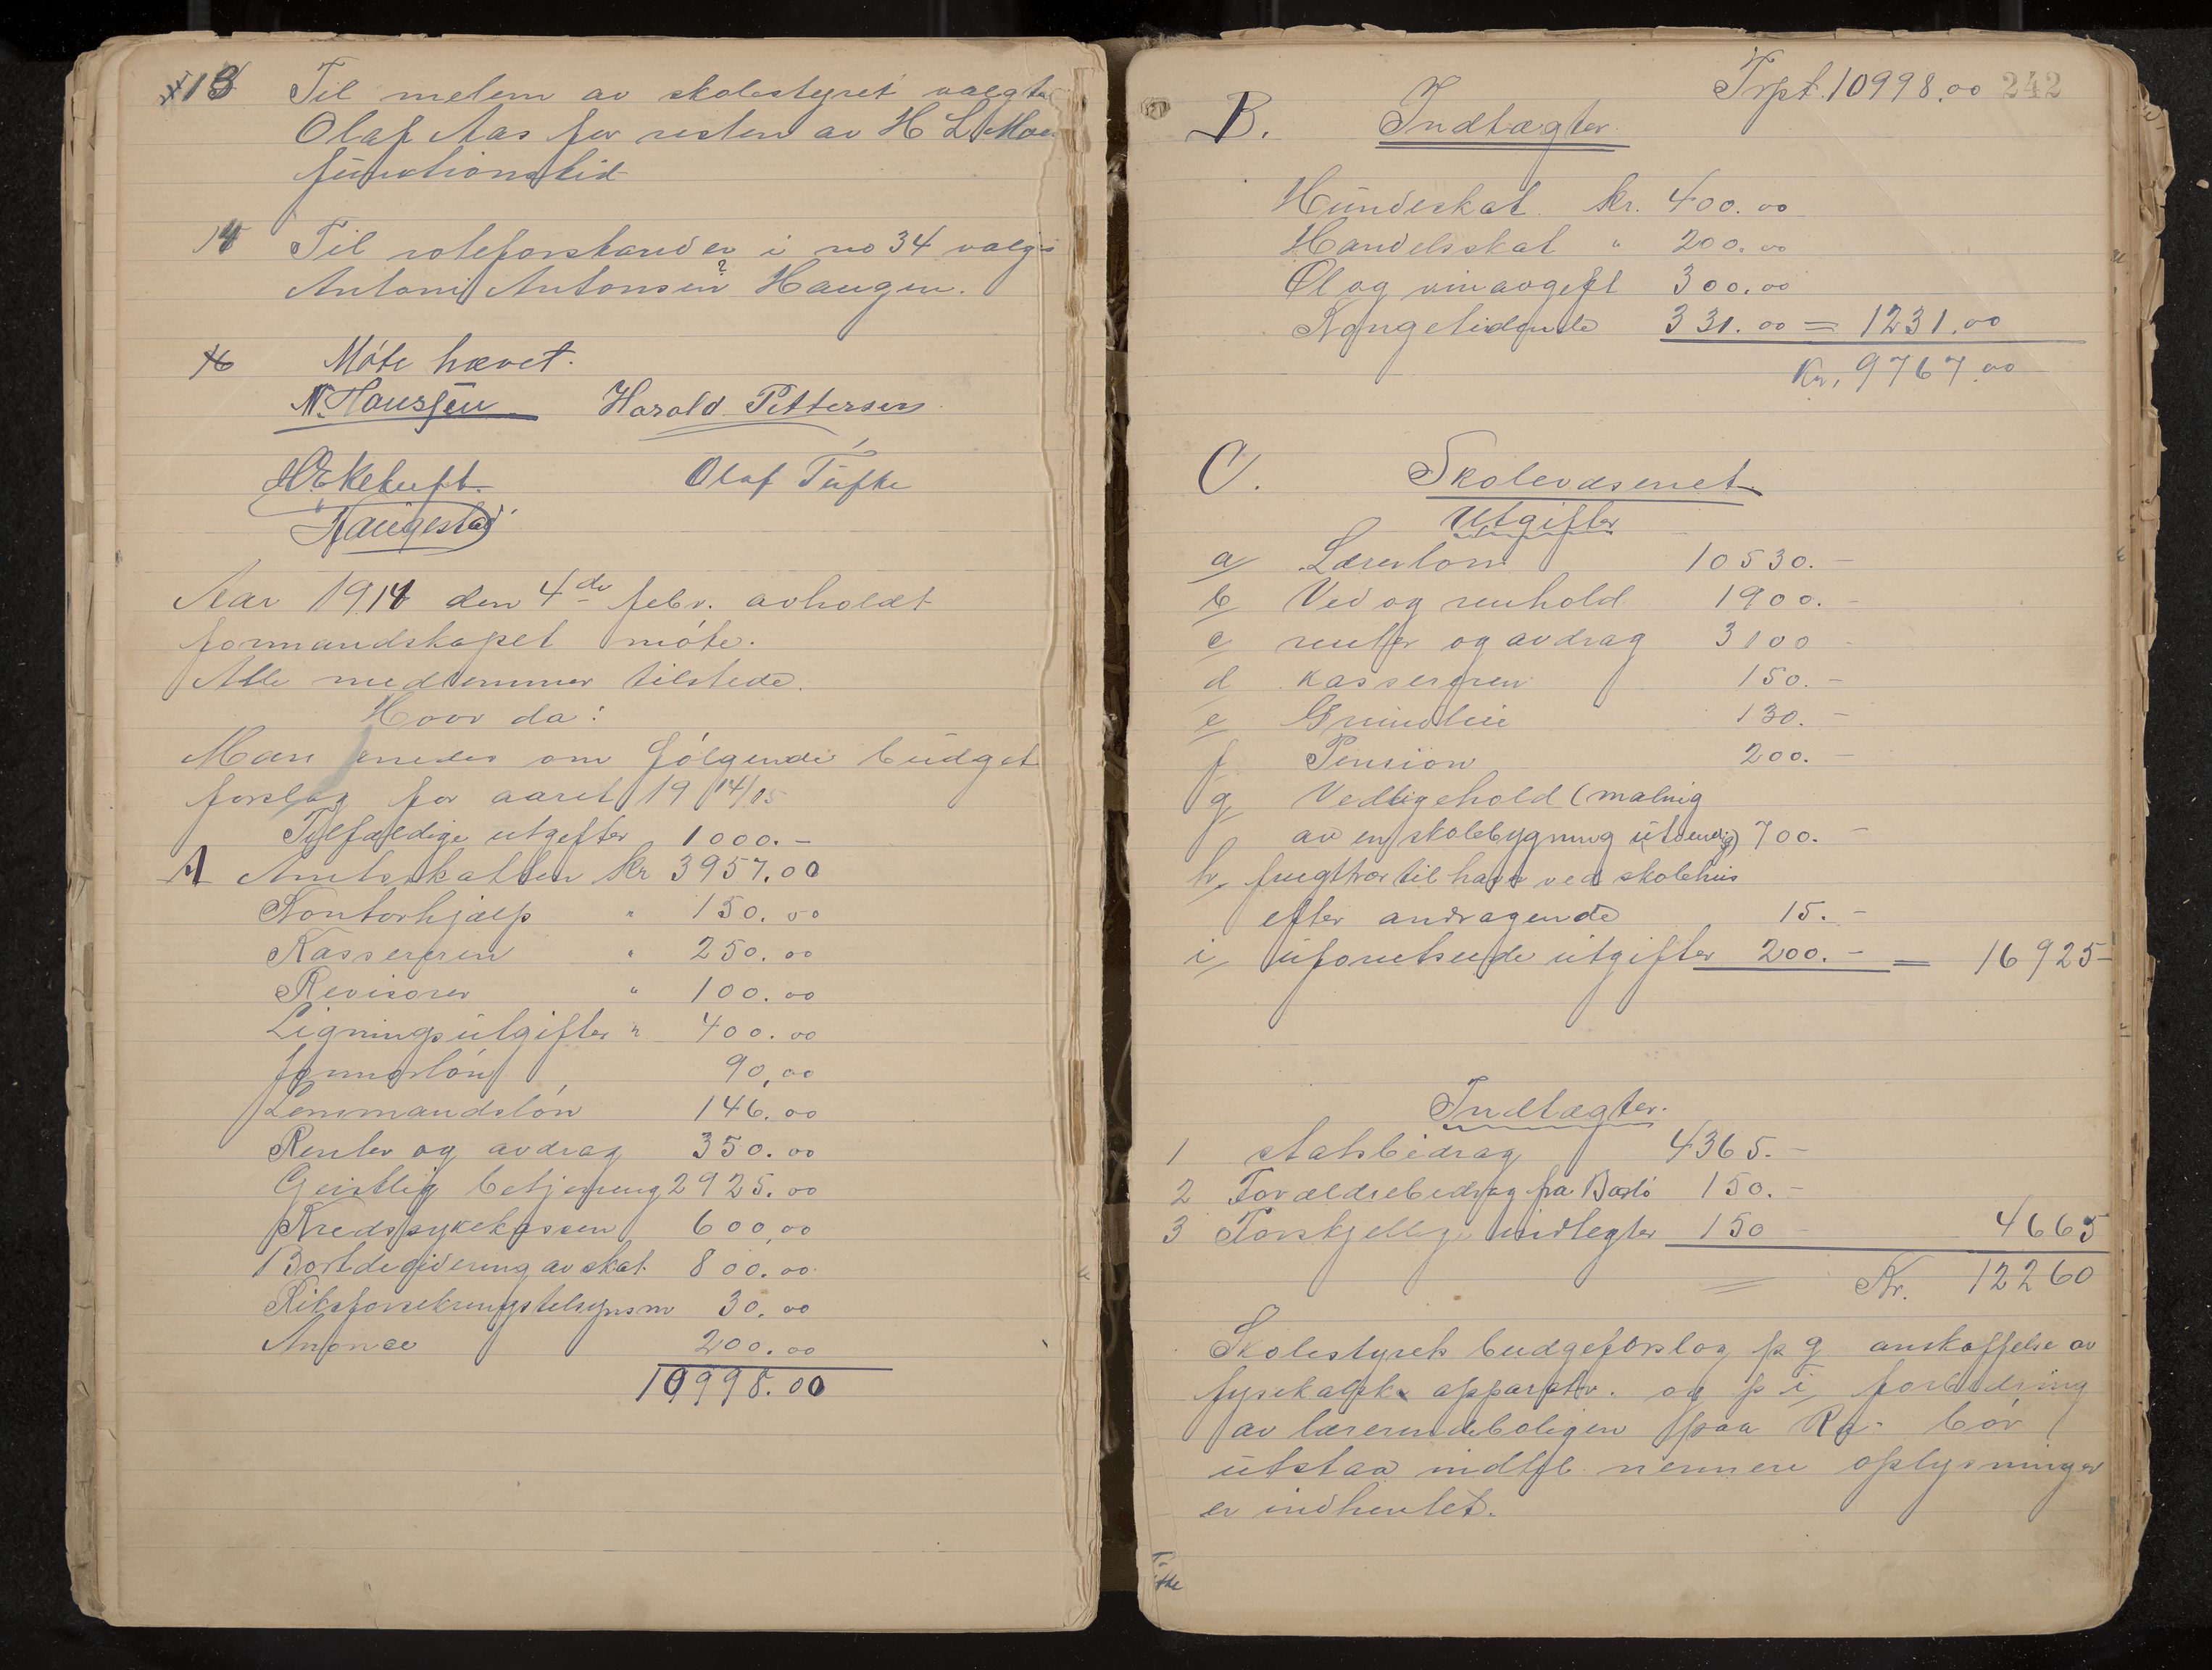 13 Til melem av skolestyret valgtes
Olaf Aas for resten av H L Moes
functionstid
14 Til roteforstander i no 34 valgs
Antoni Antonsen Haugen.
?
16 Møte hævet.
N. Hanssen Harald Pettersen
H Ekeluft. Olaf Tufte
Haugestad
Aar 1914 den 4de febr. avholdt
formandskapet møte.
Alle medlemmer tilstede.
Hvor da:
Man enedes om følgende budget
forslag for aaret 1914/15
Tilfældige utgifter 1000.-
A Amtskatten kr 3957.00
Kontorhjælp " 150.00
Kassereren " 250.00
Revisorer " 100.00
Ligningsutgifter " 400.00
Jormorløn 90,00
Lensmandsløn 146.00
Renter og avdrag 350.00
Geistlig betjening 2925.00
Kredssykekassen 600,00
Bortdegivering av skat 800.00
Riksforsekringstelsynsm 30.00
Anonce 200.00
10998.00
Trpt. 10998.00 242
B. Indtægter
Hundeskat kr. 400.00
Handelsskat " 200.00
Øl og vinavgift 300.00
Kongetidende 331.00 = 1231.00
Kr. 9767.00
C. Skolevæsenet
Utgifter
a/ Lærerløn 10530.-
b/ Ved og renhold 1900.-
c/ renter og avdrag 3100 -
d kassereren 150.-
e/ Grundleie 130.-
f Pension 200.-
g Vedligehold (malnig
av en skolebygning utvendig) 700.-
h/ frugttrær til have ved skolehus
efter andragende 15.-
i/ uforutseede utgifter 200.- = 16925-
Indtægter.
1 statsbidrag 4365.-
2 Forældrebidrag fra Bastø 150.-
3 Forskjellige indtegter 150 - 4665
Kr. 12260
Skolestyrets budgeforslag p g anskaffelse av
fysikalske apparater. og p i forbedring
av lærerindeboligen paa Ra- bør
utstaa indtil nermere oplysninger
er indhentet.